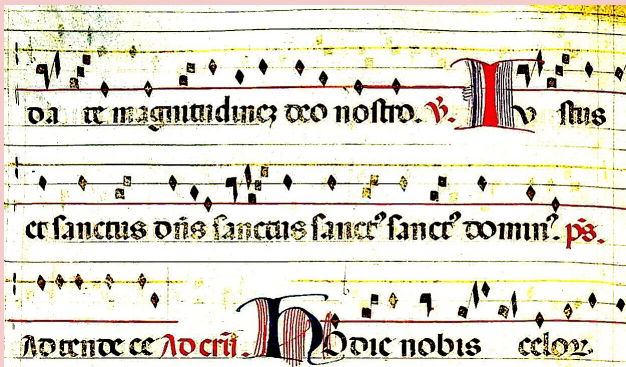 da te magnitudinez deo nostro. v. Iu stus
et sanctus dn̄s sanctus sanctꝰ sanctꝰ dominꝰ. ps.
Adtende ce Ad crm̄. Hodie nobis celoꝝ